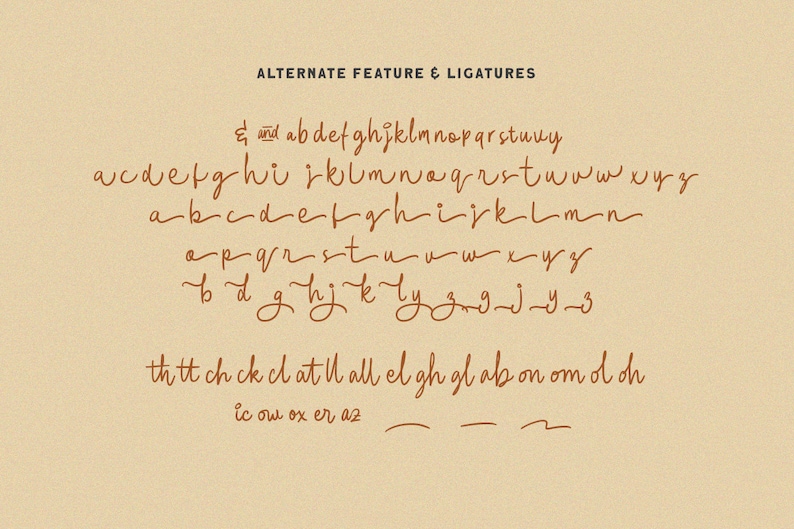 ALTERNATE FEATURE & LIGATURES
& and a b d e f g h j k l m n o p q r s t u v y
a c d e f g h i j k l m n o q r s t u v w x y z
a b c d e f g h i j k l m n
o p q r s t u v w x y z
b d g h j k l y z g j y z
th tt ch ck cl at ll all el gh gl ab on om ol oh
ic ow ox er az